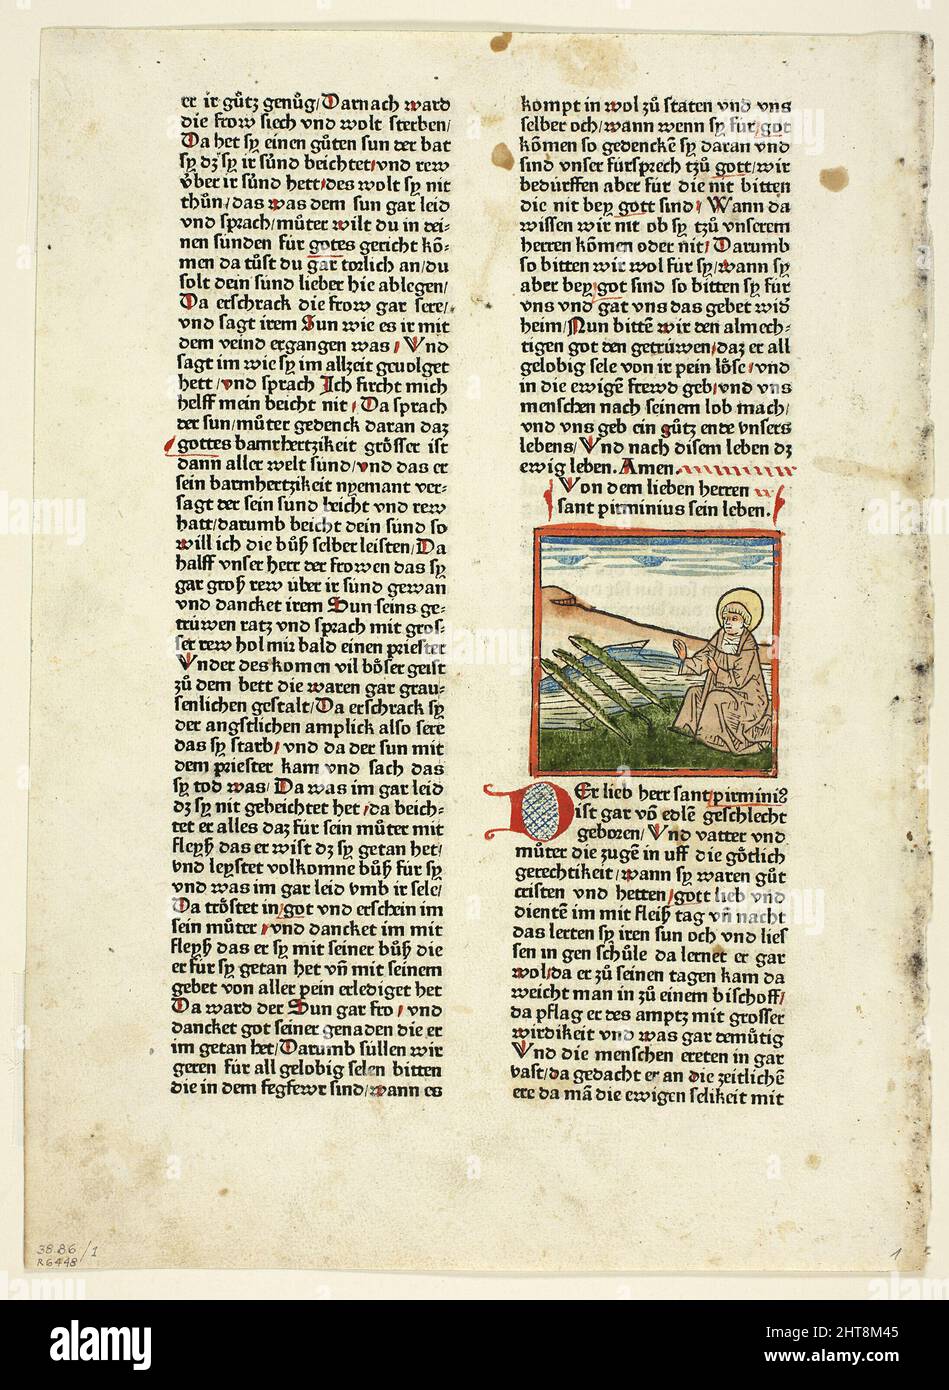 er ir gůtz genůg/Darnach ward
die frow siech vnd wolt sterben/
Da het sy einen gůten sun der bat
sy dz sy ir sünd beichtet/vnd rew
über ir sünd hett/des wolt sy nit
thůn/das was dem sun gar leid
vnd sprach/můter wilt du in dei-
nen sunden für gotes gericht kö-
men da tůst du gar torlich an/du
solt dein sund lieber hie ablegen/
Da erschrack die frow gar sere/
vnd sagt irem Sun wie es ir mit
dem veind ergangen was/Vnd
sagt im wie sy im allzeit geuolget
hett/vnd sprach Ich fircht mich
helff mein beicht nit/Da sprach
der sun/můter gedenck daran daz
gottes barmhertzikeit grösser ist
dann aller welt sund/vnd das er
sein barmhertzikeit nyemant ver-
sagt der sein sund beicht vnd rew
hatt/darumb beicht dein sünd so
will ich die bůß selber leisten/Da
halff vnser herr der frowen das sy
gar groß rew über ir sünd gewan
vnd dancket irem Sun seins ge-
trüwen ratz vnd sprach mit gros-
ser rew hol mir bald einen priester
Vnder des komen vil böser geist
zů dem bett die waren gar grau-
senlichen gestalt/Da erschrack sy
der angstlichen amplick also sere
das sy starb/vnd da der sun mit
dem priester kam vnd sach das
sy tod was/Da was im gar leid
dz sy nit gebeichtet het/da beich-
tet er alles daz für sein můter mit
fleyß das er wist dz sy getan het/
vnd leystet volkomne bůß für sy
vnd was im gar leid vmb ir sele/
Da tröstet in got vnd erschein im
sein můter/vnd dancket im mit
fleyß das er sy mit seiner bůß die
er für sy getan het vñ mit seinem
gebet von aller pein erlediget het
Da ward der Sun gar fro/vnd
dancket got seiner genaden die er
im getan het/Darumb süllen wir
geren für all gelobig selen bitten
die in dem fegfewr sind/wann es
kompt in wol zů staten vnd vns
selber och/wann wenn sy für got
kömen so gedencke sy daran vnd
sind vnser fürsprech tzů gott/wir
bedürffen aber für die nit bitten
die nit bey gott sind/Wann da
wissen wir nit ob sy tzů vnserem
herren kömen oder nit/Darumb
so bitten wir wol für sy/wann sy
aber bey got sind so bitten sy für
vns vnd gat vns das gebet wid
heim/Nun bittē wir den almech-
tigen got den getrüwen/daz er all
gelobig sele von ir pein löse/vnd
in die ewigē frewd geb/vnd vns
menschen nach seinem lob mach/
vnd vns geb ein gůtz ende vnsers
lebens/Vnd nach disem leben dz
ewig leben. Amen.
Von dem lieben herren
sant pirminius sein leben.
DEr lieb herr sant pirminiꝰ
ist gar võ edlē geschlecht
geboren/Vnd vatter vnd
můter die zugē in uff die götlich
gerechtikeit/wann sy waren gůt
cristen vnd hetten gott lieb vnd
dientē im mit fleiß tag vñ nacht
das lerten sy iren sun och vnd lies
sen in gen schůle da lernet er gar
wol/da er zů seinen tagen kam da
weicht man in zů einem bischoff/
da pflag er des amptz mit grosser
wirdikeit vnd was gar demůtig
Vnd die menschen ereten in gar
vast/da gedacht er an die zeitlichē
ere da mā die ewigen selikeit mit
38.86/1
R6448
1
alamy
Image ID: 2HT8M45
www.alamy.com